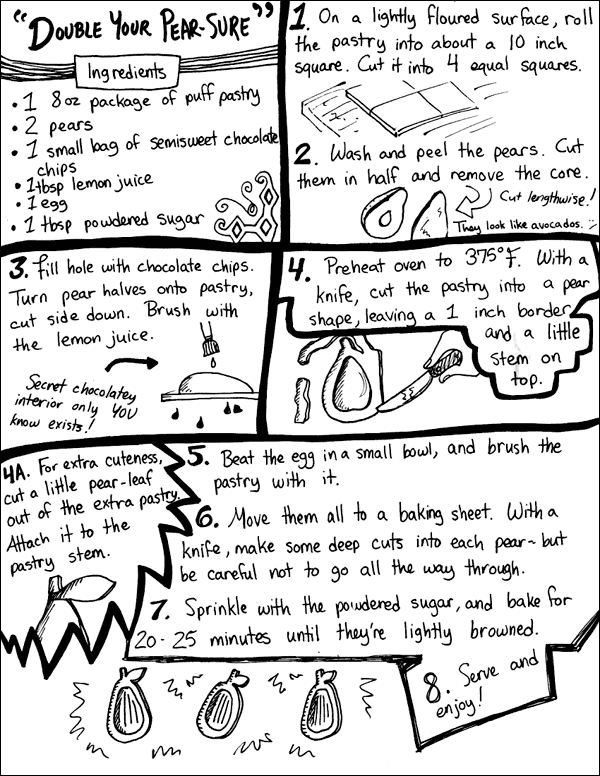 "Double Your Pear-Sure"
Ingredients
• 1 8oz package of puff pastry
• 2 pears
• 1 small bag of semisweet chocolate
chips
• 1 tbsp lemon juice
• 1 egg
• 1 tbsp powdered sugar
1. On a lightly floured surface, roll
the pastry into about a 10 inch
square. Cut it into 4 equal squares.
2. Wash and peel the pears. Cut
them in half and remove the core.
Cut lengthwise!
They look like avocados. :)
3. Fill hole with chocolate chips.
Turn pear halves onto pastry,
cut side down. Brush with
the lemon juice.
Secret chocolatey
interior only YOU
know exists!
4. Preheat oven to 375°F. With a
knife, cut the pastry into a pear
shape, leaving a 1 inch border
and a little
stem on
top.
4A. For extra cuteness,
cut a little pear-leaf
out of the extra pastry.
Attach it to the
pastry stem.
5. Beat the egg in a small bowl, and brush the
pastry with it.
6. Move them all to a baking sheet. With a
knife, make some deep cuts into each pear-but
be careful not to go all the way through.
7. Sprinkle with the powdered sugar, and bake for
20-25 minutes until they're lightly browned.
8. Serve and
enjoy!